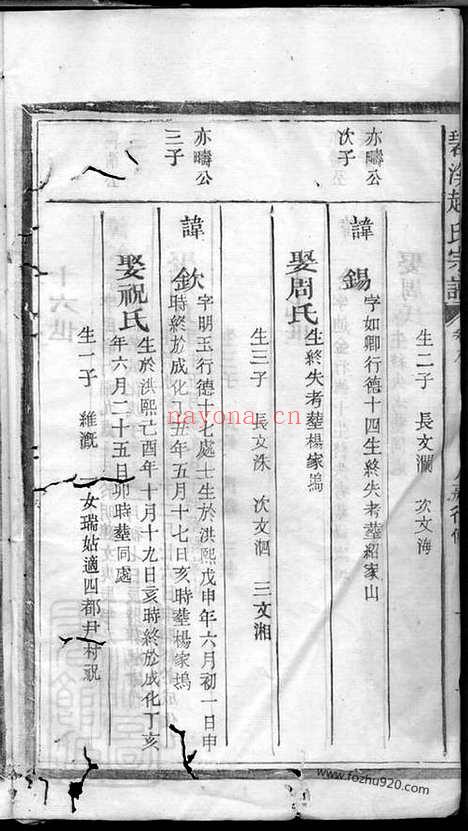 碧溪趙氏宗譜
生二子 長文瀾 次文海
亦疇公
次子
諱錫
字如卿行德十四生終失考塟紹家山
娶周氏
生終失考塟楊家塢
生三子 長文洙 次文泗 三文湘
亦疇公
三子
諱欽
字明玉行德十七處士生於洪熙戊申年六月初一日申
時終於成化丁丑年五月十七日亥時塟楊家塢
娶祝氏
生於洪熙己酉年十月十九日亥時終於成化丁亥
年六月二十五日卯時塟同處
生一子 維漑 一女瑞姑適四都尹村祝
十六世
nayona.cn
www.fozhu920.com